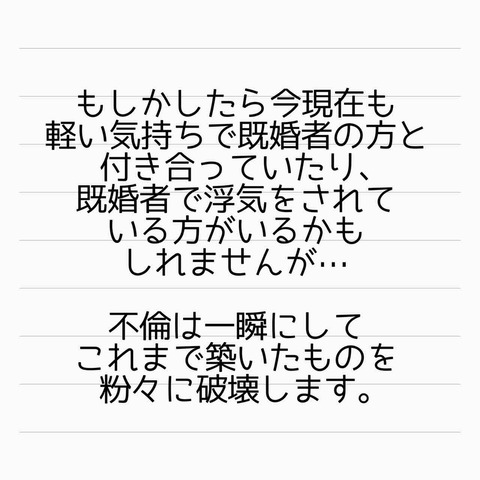 もしかしたら今現在も
軽い気持ちで既婚者の方と
付き合っていたり、
既婚者で浮気をされて
いる方がいるかも
しれませんが…
不倫は一瞬にして
これまで築いたものを
粉々に破壊します。